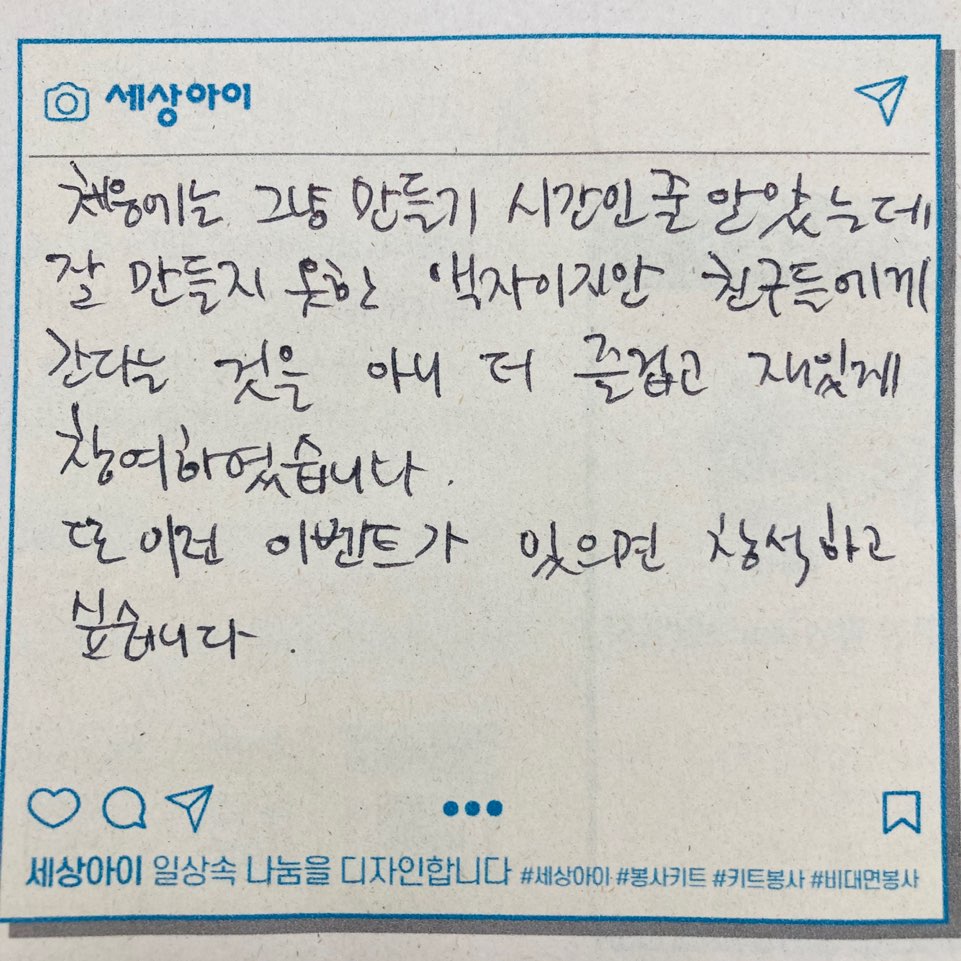 세상아이
처음에는 그냥 만들기 시간인 줄 알았는데
잘 만들지 못한 액자이지만 친구들에게
간다는 것을 아니 더 즐겁고 재밌게
참여하였습니다.
또 이런 이벤트가 있으면 참석하고
싶습니다.
세상아이 일상속 나눔을 디자인합니다 #세상아이 #봉사키트 #키트봉사 #비대면봉사